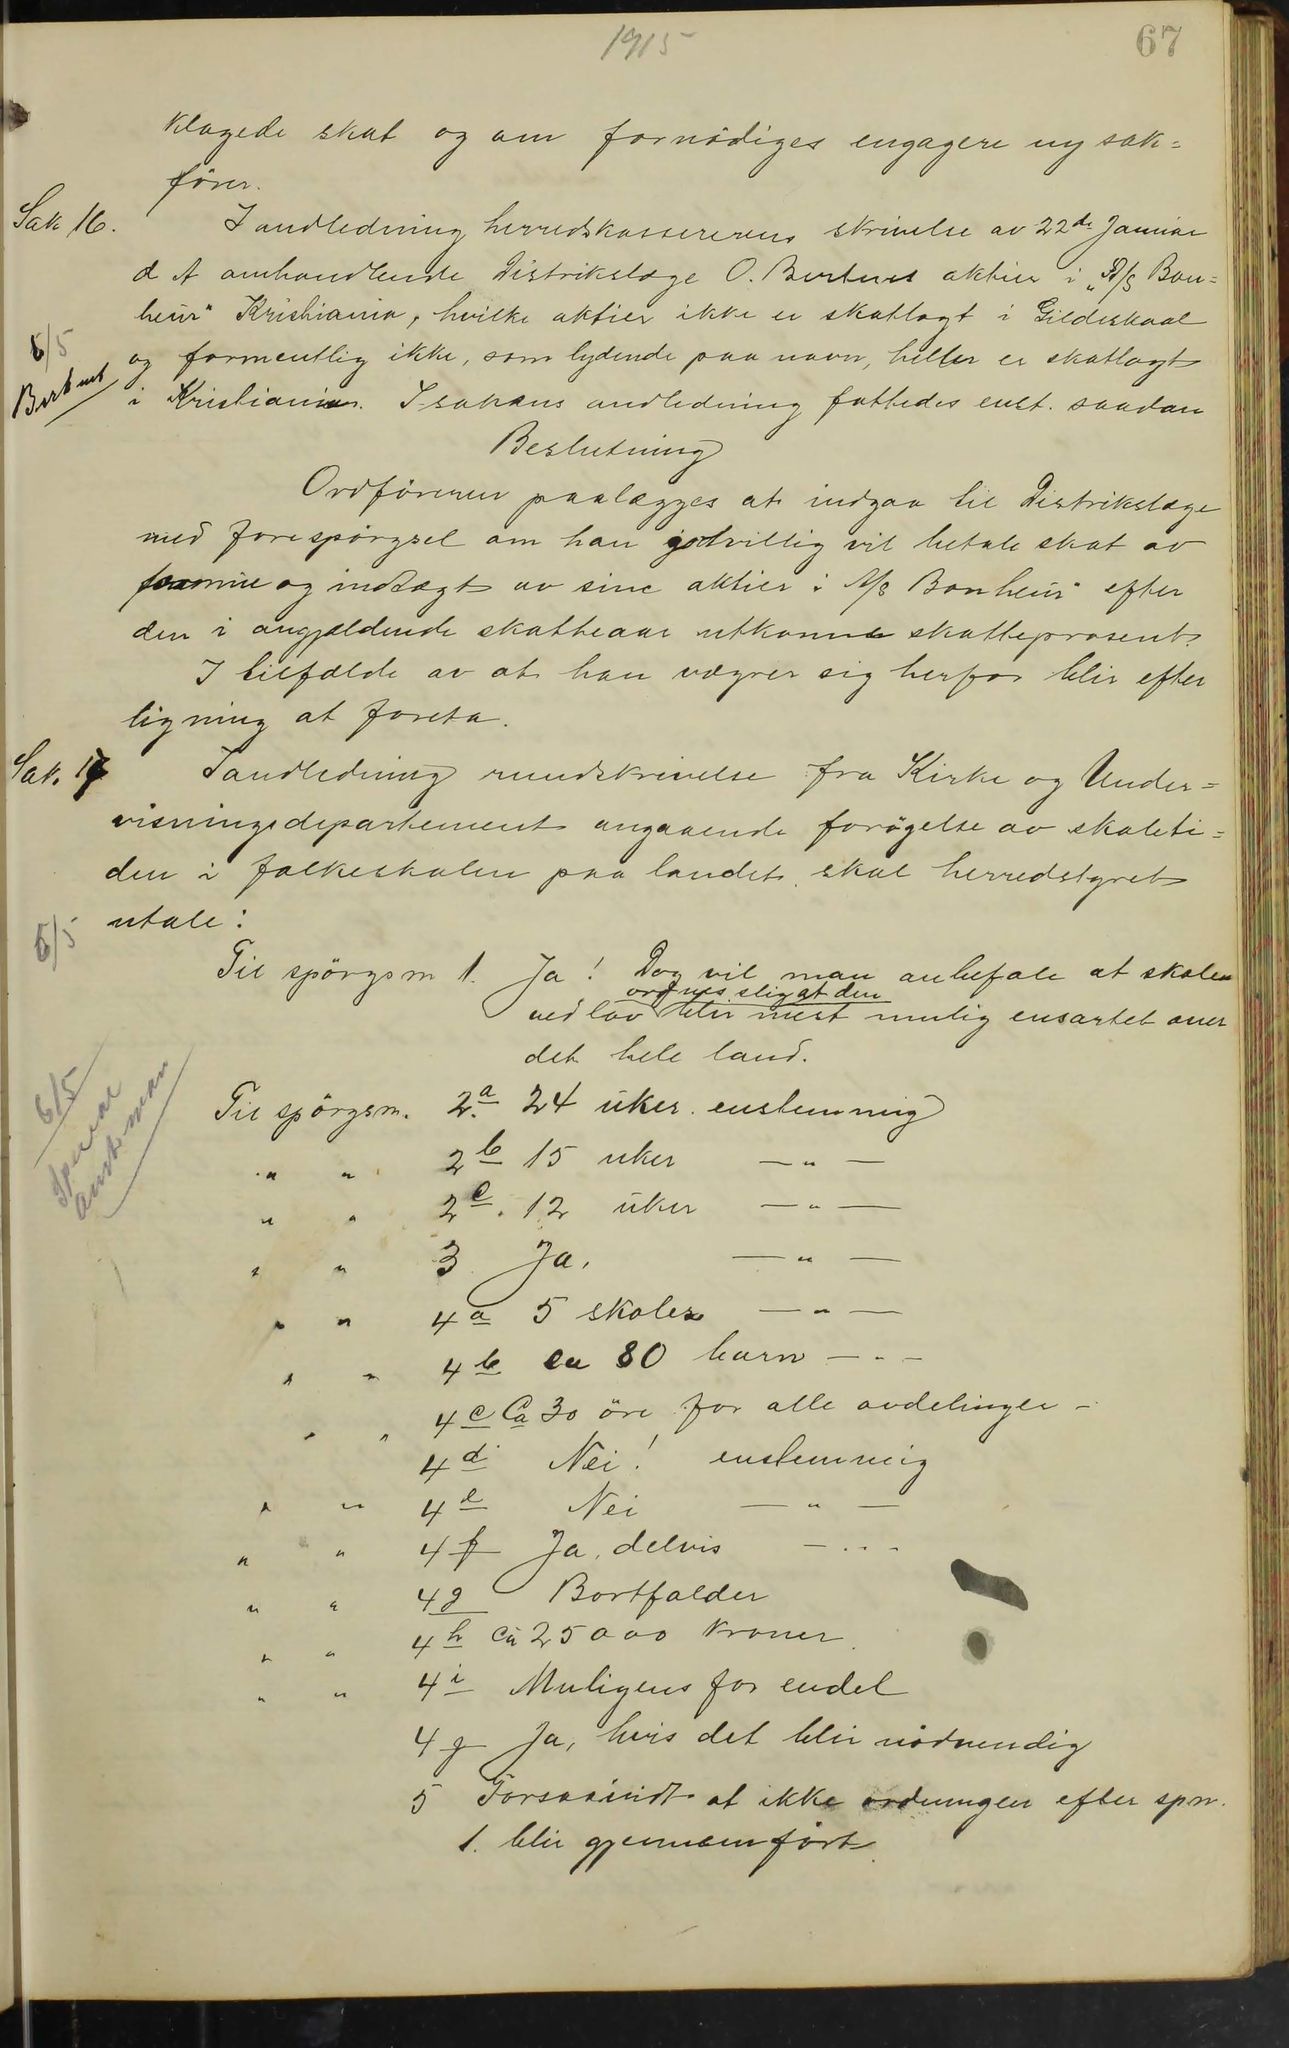 1915
67
klagede skat og om fornödiges engagere ny sak=
förer.
Sak 16. I andledning herredskassererens skrivelse av 22de Januar
d A omhandlende Distrikslæge O. Bertnes aktier i "A/S Bon=
heur" Kristiania, hvilke aktier ikke er skatlagt i Gildeskaal
5/5
og formentlig ikke, som lydende paa navn, heller er skatlagt
Bertnes
i Kristiania. I sakens andledning fattedes enst. saadan
Beslutning
Ordföreren paalægges at indgaa til Distrikslæge
med forespörgsel om han godvillig vil betale skat av
formue og indtægt av sine aktier i A/S Bonheur" efter
den i angjældende skatteaar utkomne skatteprosent.
I tilfælde av at han vægrer sig herfor blir efter
ligning at foreta.
Sak. 17 I andledning rundskrivelse fra Kirke og Under=
visningsdepartement angaaende forögelse av skoleti=
den i folkeskolen paa landet skal herredstyret
utale:
5/5
Til spörgsm 1. Ja! Dog vil man anbefale at skolen
ordnes slig at den
ved lov blir mest mulig ensartet over
det hele land.
6/5
Til spörgsm. 2.a 24 uker enstemmig
" " 2b 15 uker —"—
" " 2c. 12 uker —"—
" " 3 Ja, —"—
" " 4a 5 skoler —"—
" " 4b ca 80 barn —"—
" " 4c Ca 30 öre for alle avdelinger —
4d Nei! enstemmig
" " 4e Nei —"—
" " 4f Ja, delvis —"—
" " 4g Bortfalder
" " 4h ca 25000 kroner.
" " 4i Muligens for endel
4j Ja, hvis det blir nödvendig
5 Forsaavidt at ikke ordningen efter spm.
1. blir gjennemfört.